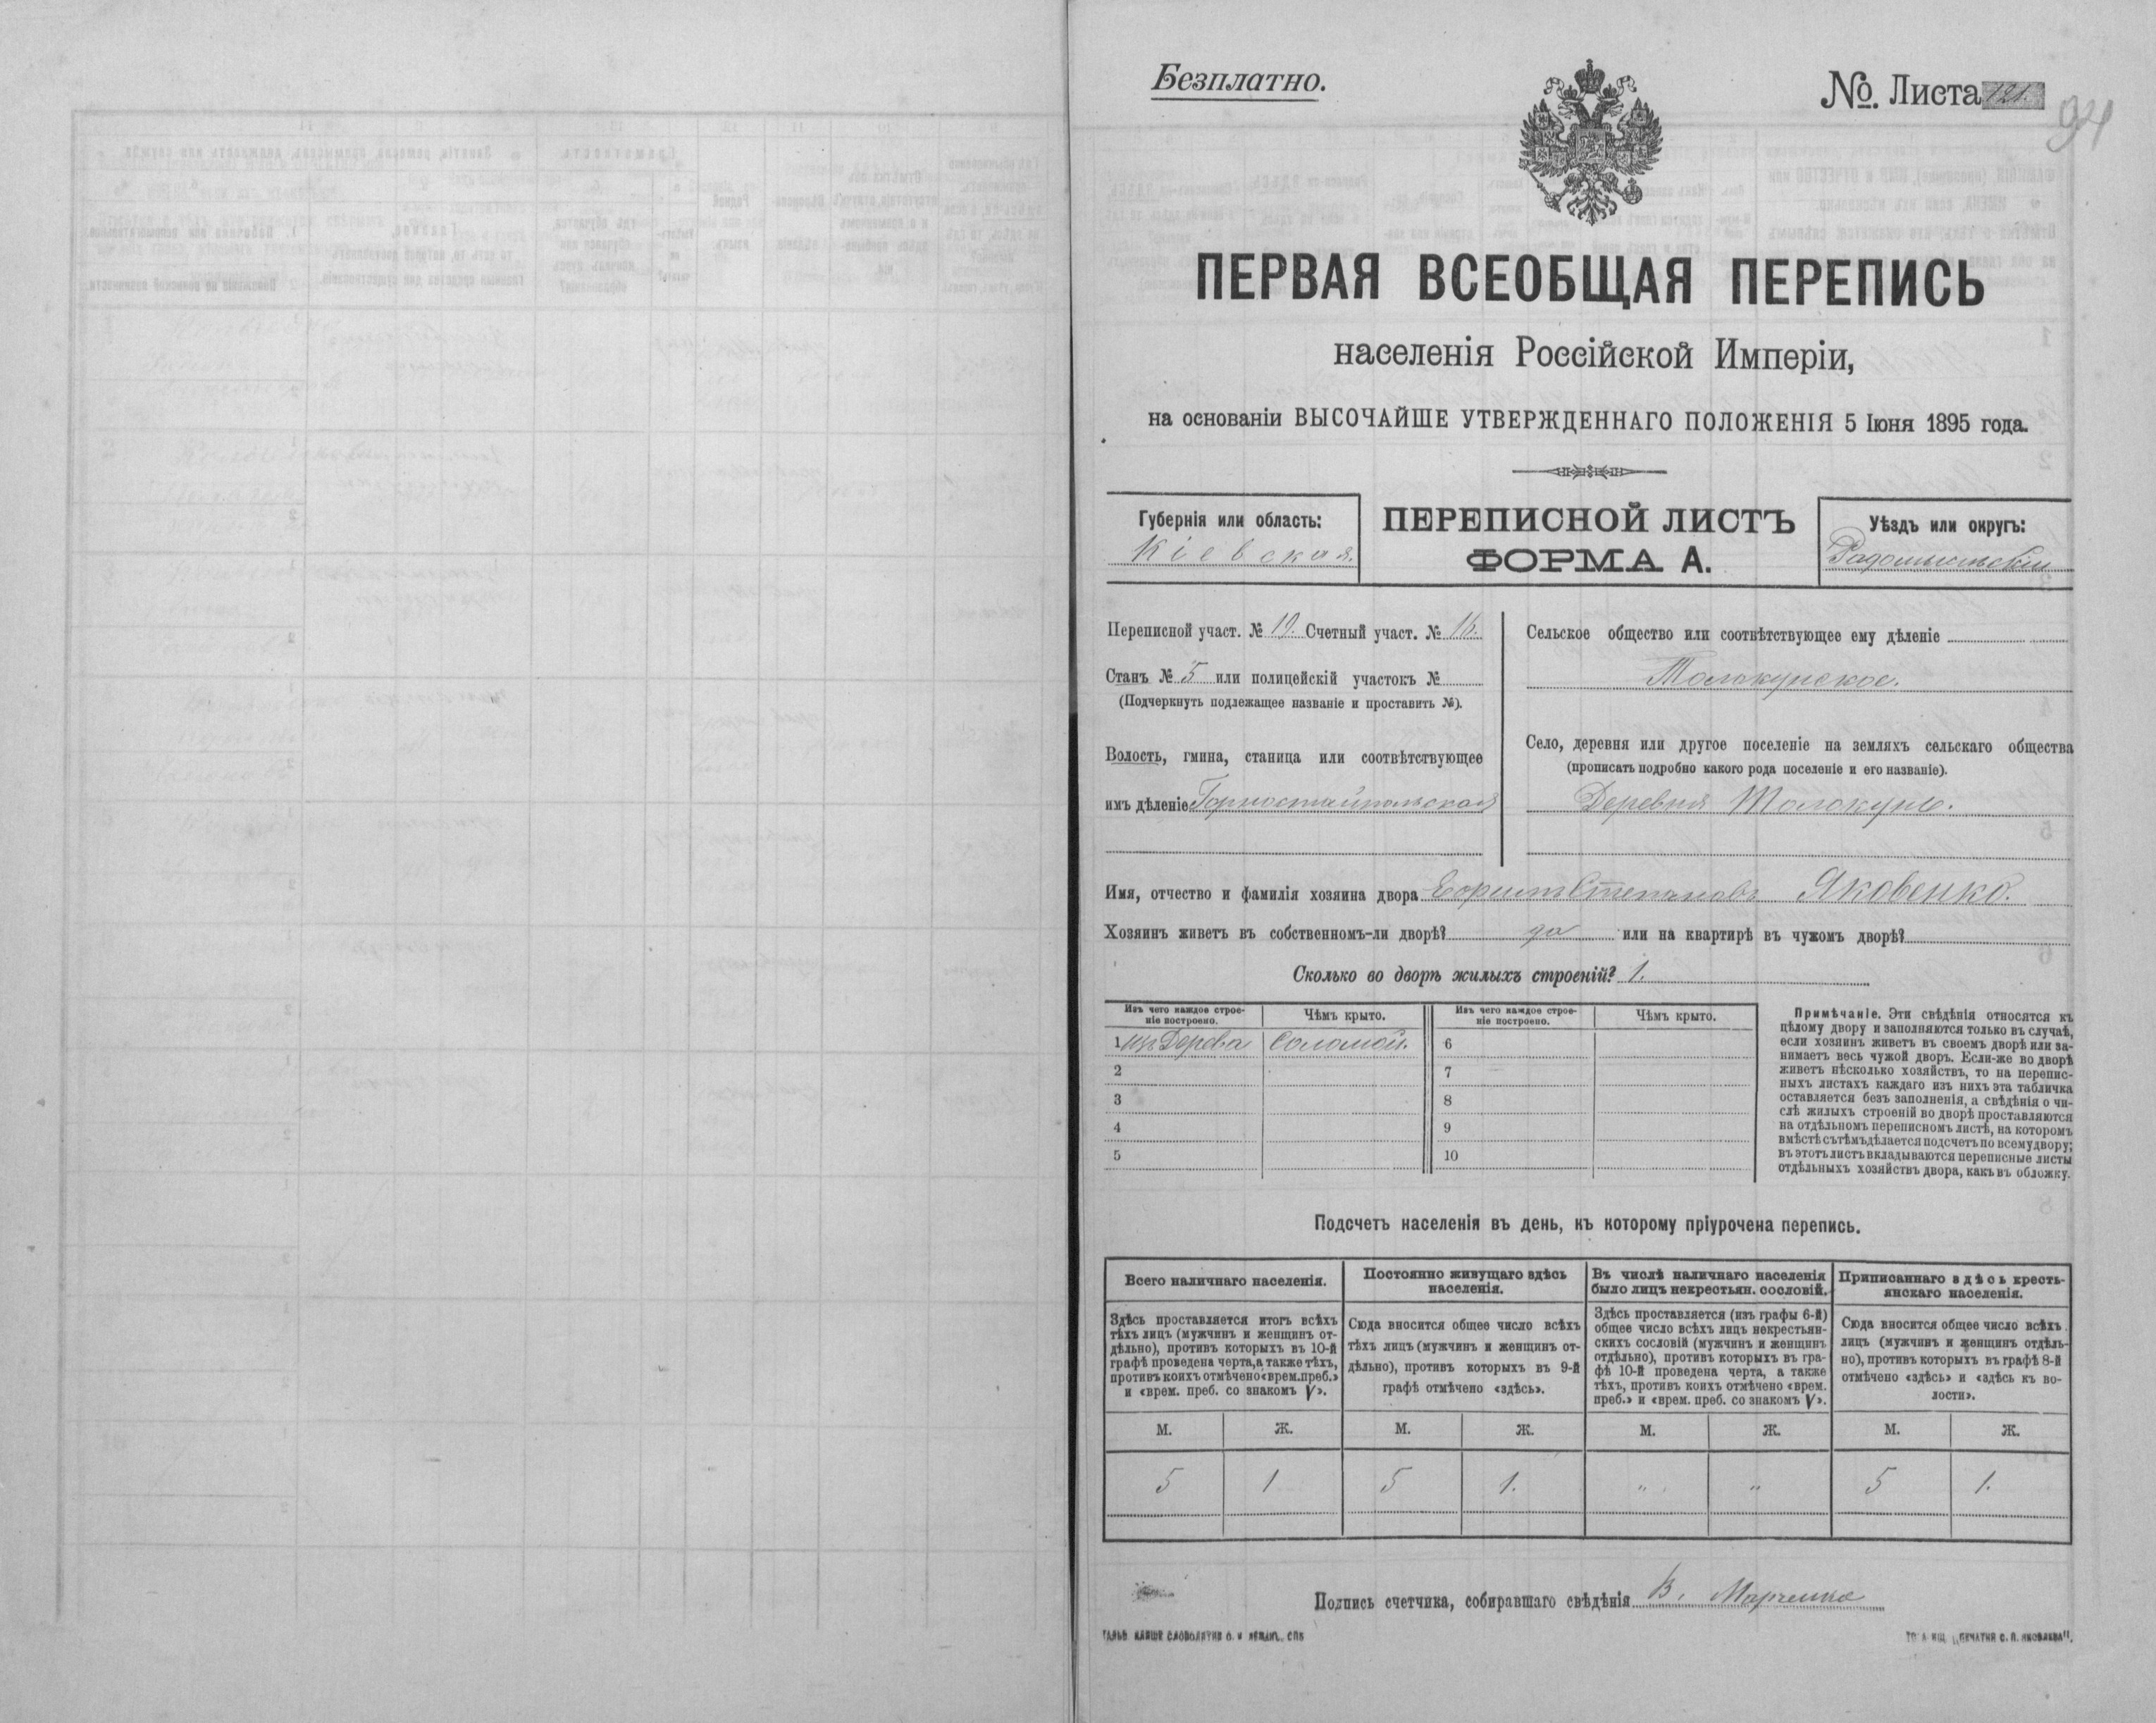 Безплатно.
№. Листа 121.
94
ПЕРВАЯ ВСЕОБЩАЯ ПЕРЕПИСЬ
населенія Россійской Имперіи,
на основаніи ВЫСОЧАЙШЕ УТВЕРЖДЕННАГО ПОЛОЖЕНІЯ 5 Іюня 1895 года.
Губернія или область:
Кіевская.
ПЕРЕПИСНОЙ ЛИСТЪ
ФОРМА А.
Уѣздъ или округъ:
Радомысльскій
Переписной участ. № 19. Счетный участ. № 16.
Станъ № 5 или полицейскій участокъ №
(Подчеркнуть подлежащее названіе и проставить №).
Волость, гмина, станица или соотвѣтствующее
имъ дѣленіе Горностайпольская
Сельское общество или соотвѣтствующее ему дѣленіе
Толокунское.
Село, деревня или другое поселеніе на земляхъ сельскаго общества
(прописать подробно какого рода поселеніе и его названіе).
Деревня Толокунь.
Имя, отчество и фамилія хозяина двора Ефимъ Степановъ Яковенко.
Хозяинъ живетъ въ собственномъ-ли дворѣ? да или на квартирѣ въ чужомъ дворѣ?
Сколько во дворѣ жилыхъ строеній? 1.
Изъ чего каждое строе-
ніе построено.
Чѣмъ крыто.
Изъ чего каждое строе-
ніе построено.
Чѣмъ крыто.
1 изъ Дерева Соломой. 6
2 7
3 8
4 9
5 10
Примѣчаніе. Эти свѣдѣнія относятся къ
цѣлому двору и заполняются только въ случаѣ,
если хозяинъ живетъ въ своемъ дворѣ или за-
нимаетъ весь чужой дворъ. Если-же во дворѣ
живетъ нѣсколько хозяйствъ, то на перепис-
ныхъ листахъ каждаго изъ нихъ эта табличка
оставляется безъ заполненія, а свѣдѣнія о чи-
слѣ жилыхъ строеній во дворѣ проставляются
на отдѣльномъ переписномъ листѣ, на которомъ
вмѣстѣ съ тѣмъ дѣлается подсчетъ по всему двору;
въ этотъ листъ вкладываются переписные листы
отдѣльныхъ хозяйствъ двора, какъ въ обложку.
Подсчетъ населенія въ день, къ которому пріурочена перепись.
Всего наличнаго населенія.
Здѣсь проставляется итогъ всѣхъ
тѣхъ лицъ (мужчинъ и женщинъ от-
дѣльно), противъ которыхъ въ 10-й
графѣ проведена черта, а также тѣхъ,
противъ коихъ отмѣчено «врем. преб.»
и «врем. преб. со знакомъ V».
Постоянно живущаго здѣсь
населенія.
Сюда вносится общее число всѣхъ
тѣхъ лицъ (мужчинъ и женщинъ от-
дѣльно), противъ которыхъ въ 9-й
графѣ отмѣчено «здѣсь».
Въ числѣ наличнаго населенія
было лицъ некрестьян. сословій.
Здѣсь проставляется (изъ графы 6-й)
общее число всѣхъ лицъ некрестьян-
скихъ сословій (мужчинъ и женщинъ
отдѣльно), противъ которыхъ въ гра-
фѣ 10-й проведена черта, а также
тѣхъ, противъ коихъ отмѣчено «врем.
преб.» и «врем. преб. со знакомъ V».
Приписаннаго здѣсь кресть-
янскаго населенія.
Сюда вносится общее число всѣхъ
лицъ (мужчинъ и женщинъ отдѣль-
но), противъ которыхъ въ графѣ 8-й
отмѣчено «здѣсь» и «здѣсь къ во-
лости».
М. Ж. М. Ж. М. Ж. М. Ж.
5 1 5 1. " " 5 1.
Подпись счетчика, собиравшаго свѣдѣнія В. Марченко